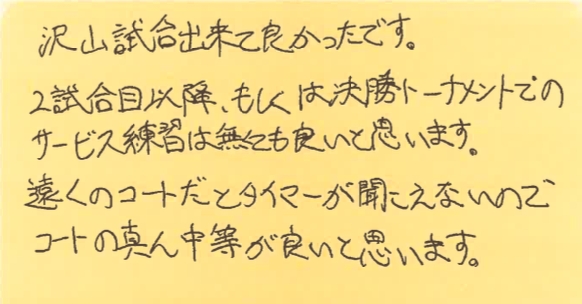 沢山試合出来て良かったです。
2試合目以降、もしくは決勝トーナメントでの
サービス練習は無くても良いと思います。
遠くのコートだとタイマーが聞こえないので
コートの真ん中等が良いと思います。